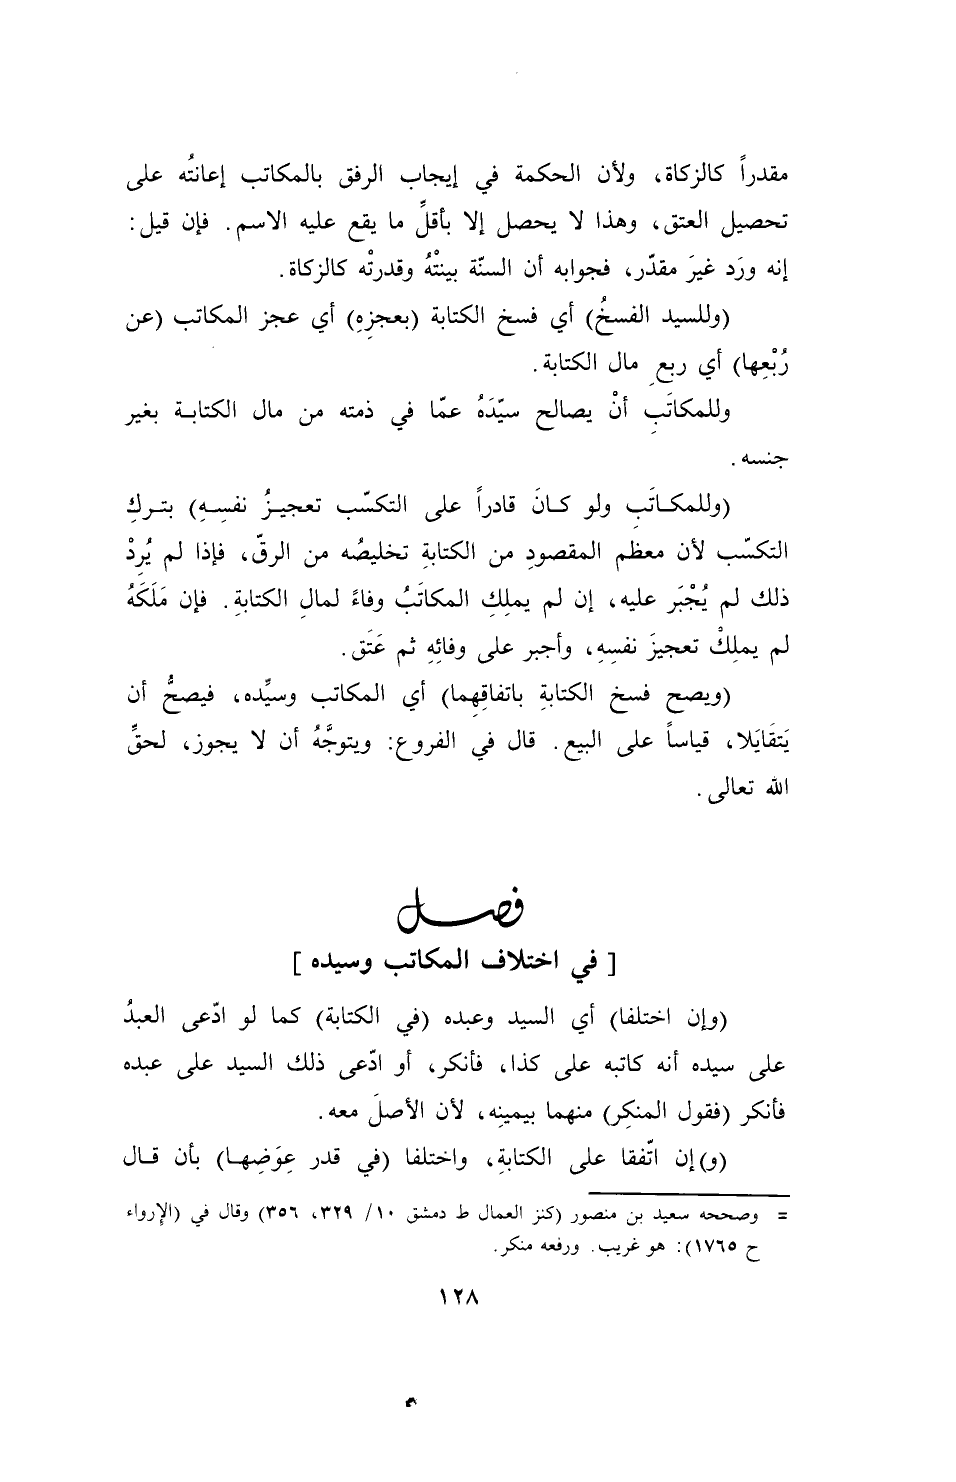 مقدراً كالزكاة، ولأن الحكمة في إيجاب الرفق بالمكاتب إعانتُه على
تحصيل العتق، وهذا لا يحصل إلا بأقلِّ ما يقع عليه الاسم. فإن قيل:
إنه ورَد غيرَ مقدّر، فجوابه أن السنّة بينتْهُ وقدرتْه كالزكاة.
(وللسيد الفسخُ) أي فسخ الكتابة (بعجزِهِ) أي عجز المكاتب (عن
رُبْعِها) أي ربعِ مال الكتابة.
وللمكاتَبِ أنْ يصالح سيّدَهُ عمّا في ذمته من مال الكتابة بغير
جنسه.
(وللمكاتَبِ ولو كانَ قادراً على التكسّب تعجيزُ نفسِهِ) بتركِ
التكسّب لأن معظم المقصودِ من الكتابةِ تخليصُه من الرقّ، فإذا لم يُرِدْ
ذلك لم يُجْبَر عليه، إن لم يملِكِ المكاتَبُ وفاءً لمالِ الكتابةِ. فإن مَلَكَهُ
لم يملِكْ تعجيزَ نفسِهِ، وأجبر على وفائِهِ ثم عَتَق.
(ويصح فسخ الكتابةِ باتفاقِهما) أي المكاتب وسيِّده، فيصحُّ أن
يَتقَايَلا، قياساً على البيع. قال في الفروع: ويتوجَّهُ أن لا يجوز، لحقِّ
الله تعالى.
فصل
[ في اختلاف المكاتب وسيده ]
(وإن اختلفا) أي السيد وعبده (في الكتابة) كما لو ادّعى العبدُ
على سيده أنه كاتبه على كذا، فأنكر، أو ادّعى ذلك السيد على عبده
فأنكر (فقول المنكِر) منهما بيمينِه، لأن الأصلَ معه.
(و)إن اتّفقا على الكتابةِ، واختلفا (في قدر عِوَضِها) بأن قال
= وصححه سعيد بن منصور (كنز العمال ط دمشق ١٠/ ٣٢٩، ٣٥٦) وقال في (الإرواء
ح ١٧٦٥): هو غريب. ورفعه منكر.
١٢٨